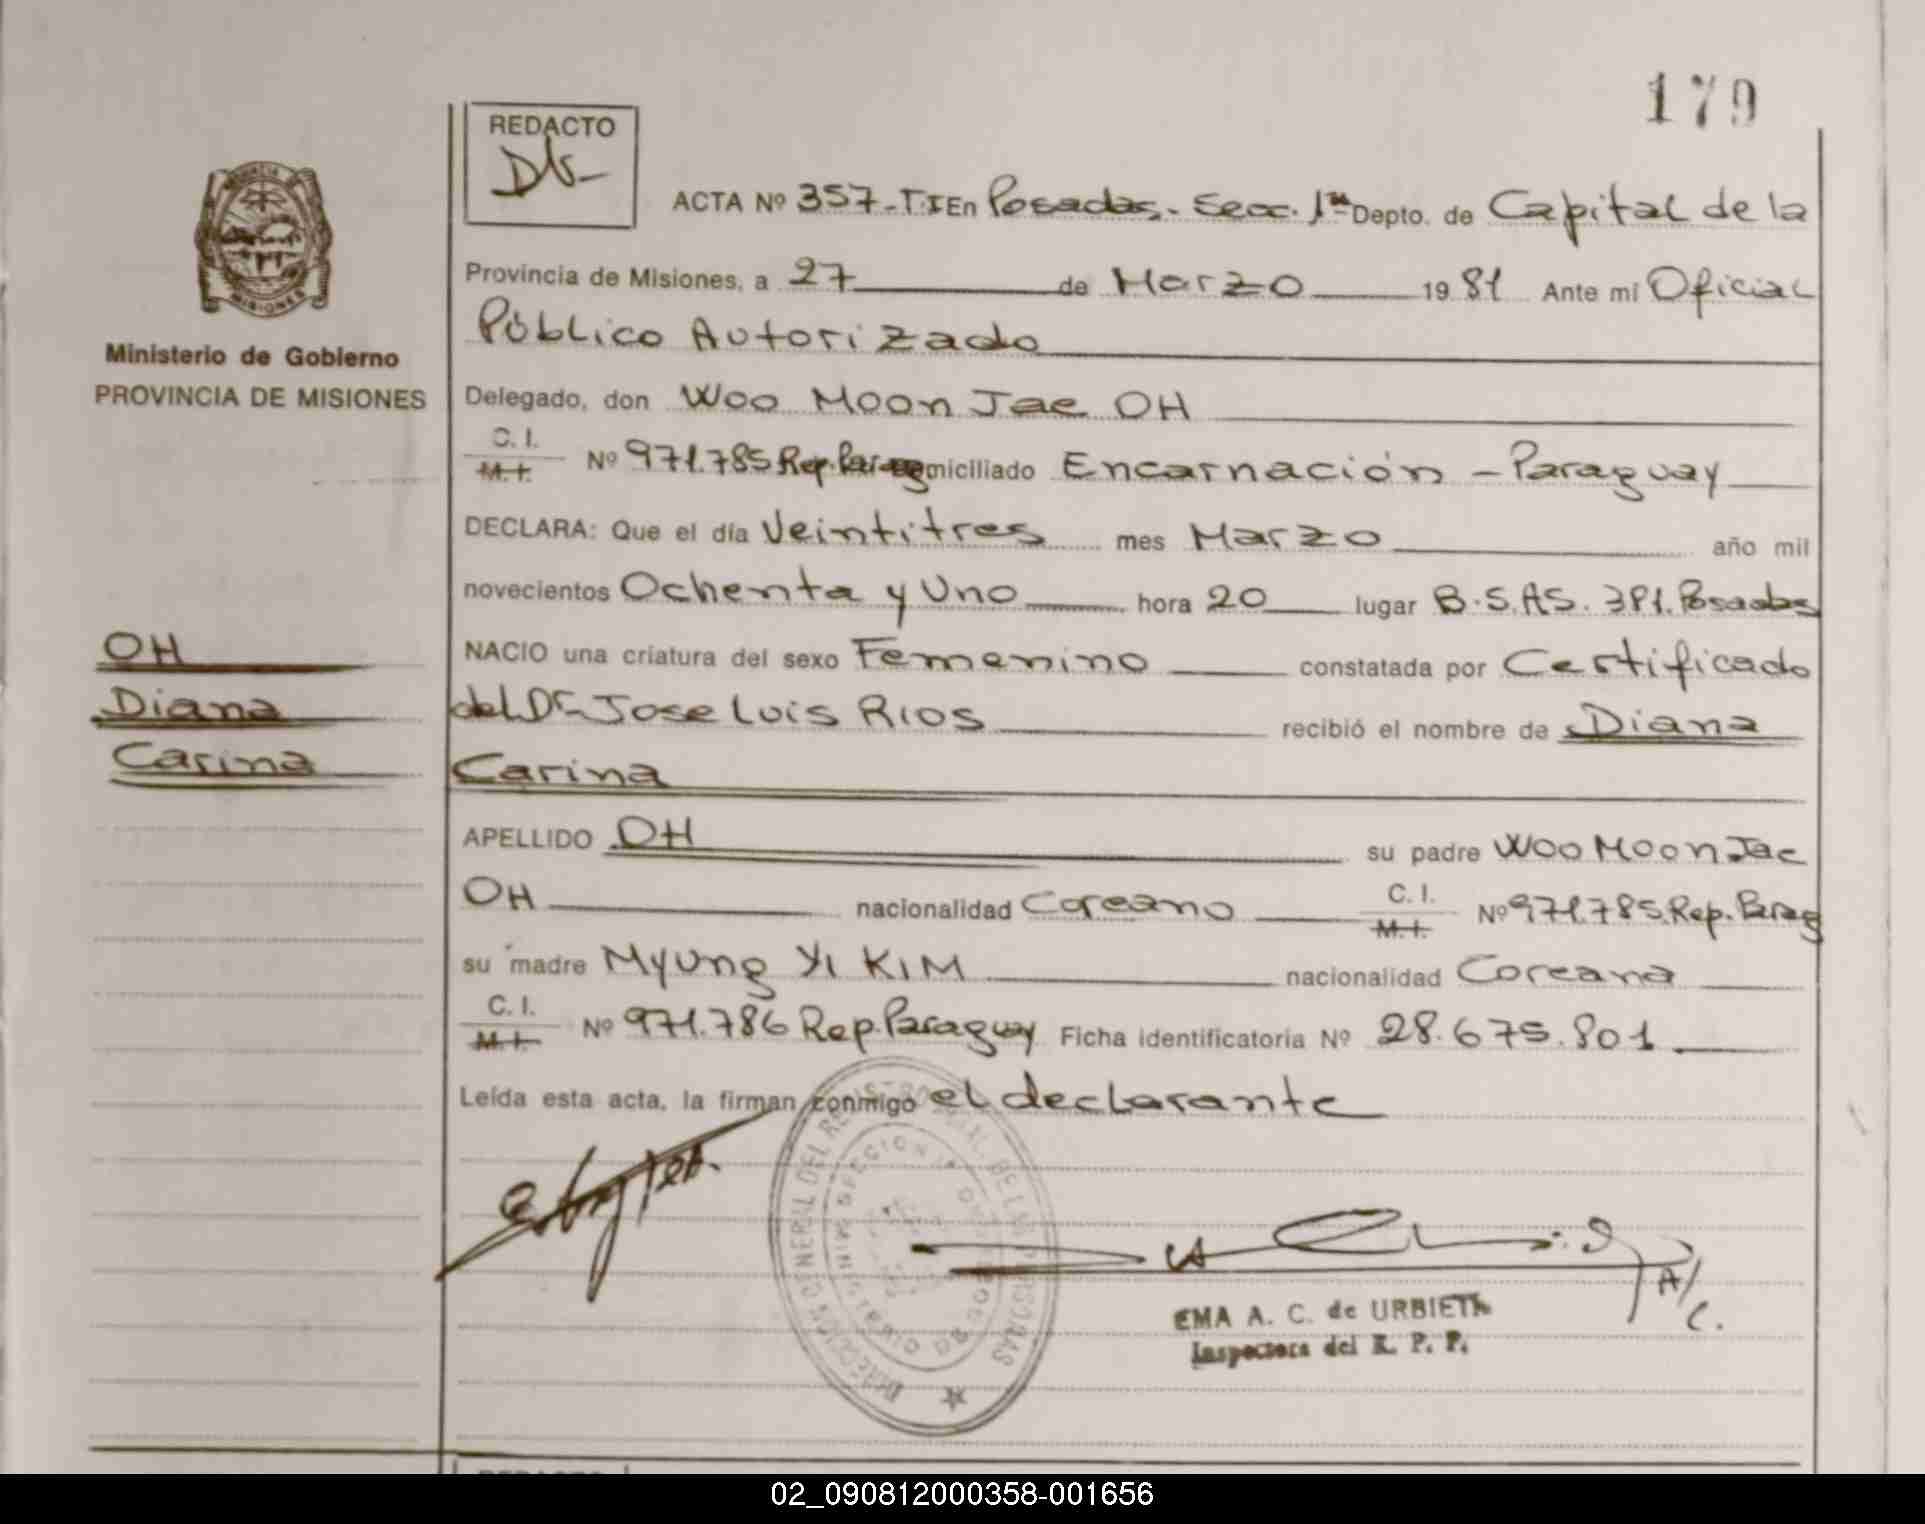 179
REDACTO
ACTA Nº 357-T.I En Posadas. Secc. 1ra Depto. de Capital de la
Provincia de Misiones, a 27 de Marzo 1981 Ante mi Oficial
Público Autorizado
Ministerio de Gobierno
PROVINCIA DE MISIONES
Delegado, don Woo Moon Jae OH
C. I.
M. I. Nº 971.785 Rep. Parag domiciliado Encarnación - Paraguay
DECLARA: Que el día Veintitres mes Marzo año mil
novecientos Ochenta y Uno hora 20 lugar B.S.AS. 381. Posadas
OH
Diana
Carina
NACIO una criatura del sexo Femenino constatada por Certificado
del Dr. Jose Luis Rios recibió el nombre de Diana
Carina
APELLIDO OH su padre Woo Moon Jae
OH nacionalidad Coreano C. I. M. I. Nº 971.785. Rep. Parag
su madre Myung Yi KIM nacionalidad Coreana
C. I.
M. I. Nº 971.786 Rep. Paraguay Ficha identificatoria Nº 28.675.801
Leída esta acta, la firman conmigo el declarante
DIRECCION GENERAL DEL REGISTRO DE LAS PERSONAS
MINISTERIO DE GOBIERNO
A/C.
EMA A. C. de URBIETA
Inspectora del R. P. P.
REDACTO
02_090812000358-001656